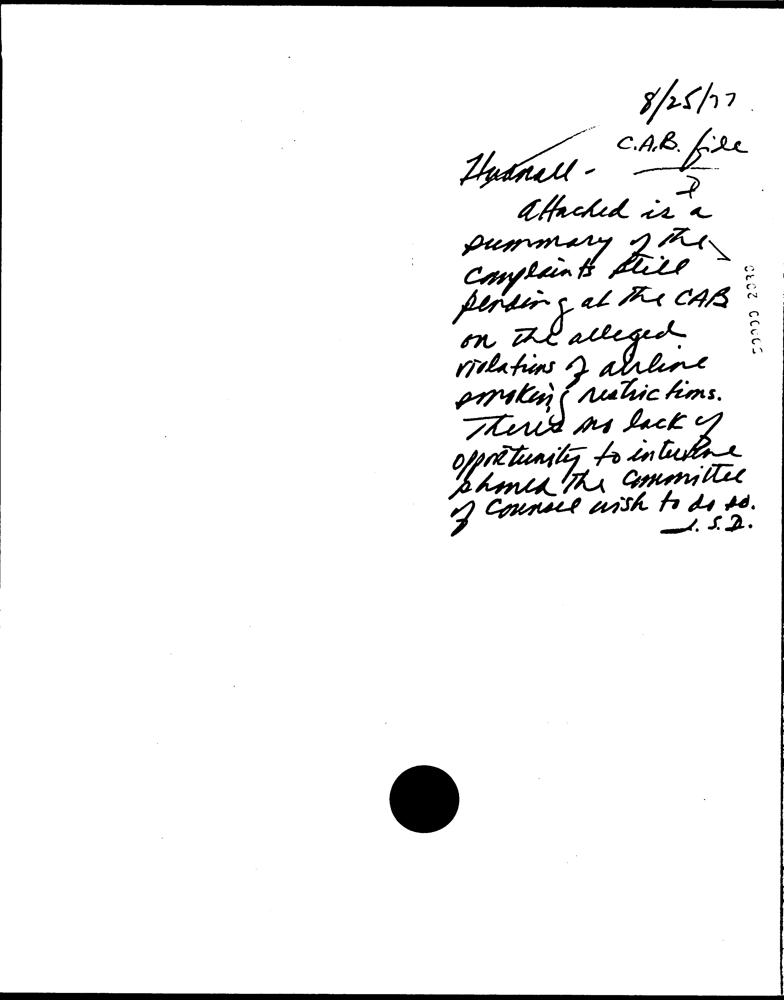 8/25/77
C.A.B. file
Hudnall -
Attached is a
summary of the
complaints still
pending at the CAB
on the alleged
violations of airline
smoking restrictions.
There's no lack of
opportunity to intervene
should the Committee
of Counsel wish to do so.